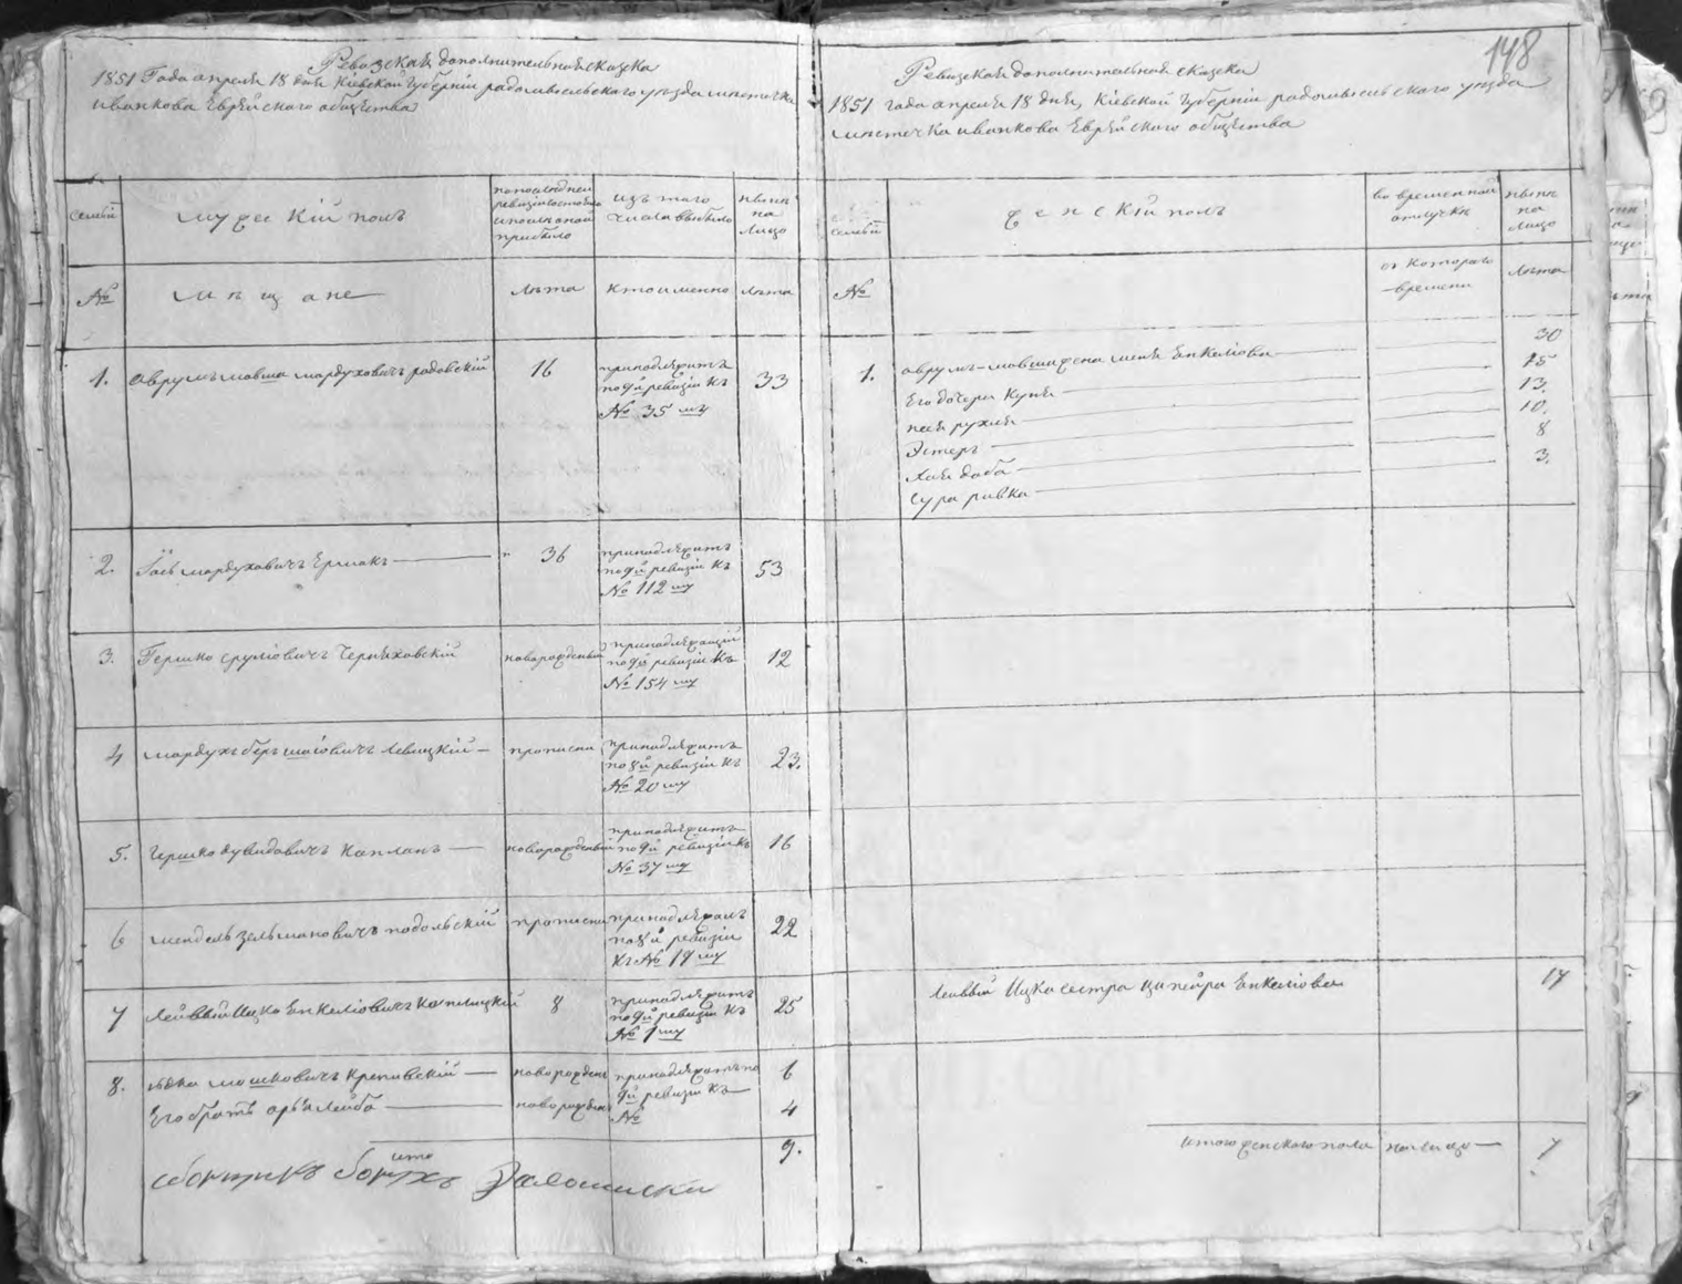 148
Ревизская дополнительная сказка
1851 Года апреля 18 дня Кіевской Губерніи радомысльского уѣзда мѣстечка
иванкова Еврейского общества
семьй
мужескій полъ
по последней
ревизіи состояло
и после оной
прибыло
изъ того
числа выбыло
нынѣ
на
лицо
№
мѣщане
лѣта
кто именно
лѣта
1.
аврумъ мовша мордуховичъ радовскій
16
принадлежитъ
по 9й ревизіи къ
№ 35 му
33
2.
мордуховичъ Ермакъ
36
принадлежитъ
по 9й ревизіи къ
№ 112 му
53
3.
Гершко сруліовичъ Черняховскій
новорожденый
принадлежащій
по 9й ревизіи къ
№ 154 му
12
4
мордухъ беръ шаіовичъ Левицкій
прописан
принадлежитъ
по 9й ревизіи къ
№ 20 му
23.
5.
Гершко дувидовичъ капланъ
новорожденый
принадлежитъ
по 9й ревизіи къ
№ 37 му
16
6
мендель зельмановичъ подольскій
прописан
принадлежалъ
по 9й ревизіи
къ № 19 му
22
7
Лейбвый Ицко Енкеліовичъ
8
принадлежитъ
по 9й ревизіи къ
№ 1 му
25
8.
мошковичъ крепивскій
новорожден
принадлежатъ по
9й ревизіи къ
№
6
Его братъ арья лейба
новорожден
4
ито
9.
сборщикъ
Ревизская дополнительная сказка
1851 года апреля 18 дня, Кіевской Губерніи радомысльского уѣзда
мѣстечка иванкова Еврейского общества
семьй
женскій полъ
во временной
отлучки
нынѣ
на
лицо
№
съ котораго
времени
лѣта
1.
аврумъ-мовши жена меня Енкеліова
30
Его дочери Куня
15
песя рухля
13.
Эстеръ
10.
Хая доба
8
Сура ривка
3.
Лейбвый Ицка сестра ципейра Енкеліова
17
итого женского пола на лицо
7